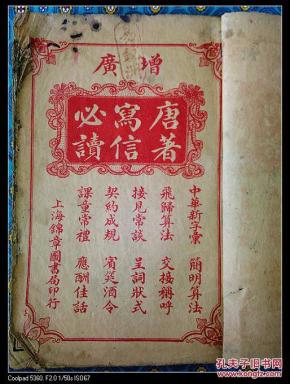 增廣
唐著
寫信
必讀
中華新字彙 簡明算法
飛歸算法 交接稱呼
接見常談 呈詞狀式
契約成規
課童常禮 應酬佳話
上海錦章圖書局印行
Coolpad 5360, F2.0 1/50s ISO67
孔夫子旧书网